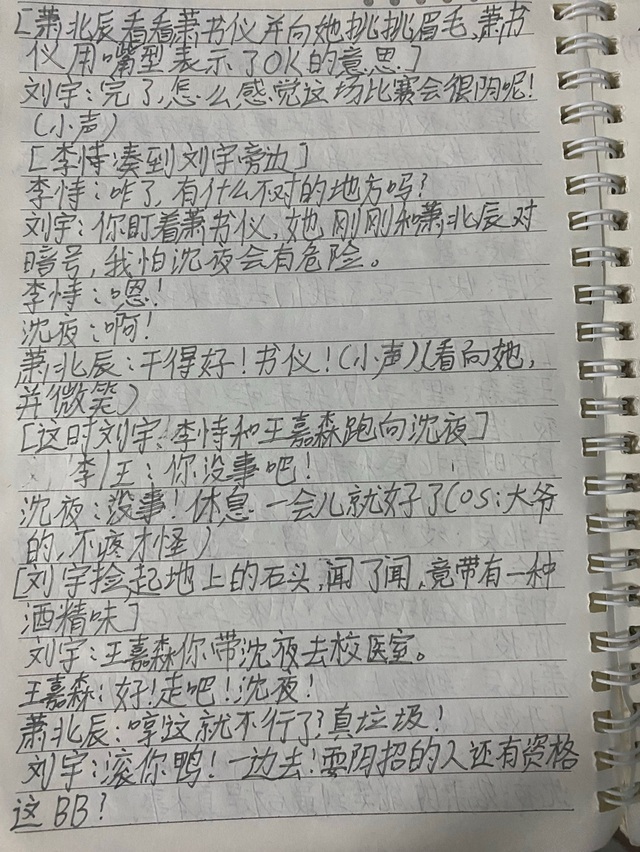 [萧北辰看看萧书仪并向她挑挑眉毛,萧书
仪用嘴型表示了OK的意思]
刘宇:完了,怎么感觉这场比赛会很阴呢!
(小声)
[李恃凑到刘宇旁边]
李恃:咋了,有什么不对的地方吗?
刘宇:你盯着萧书仪,她刚刚和萧北辰对
暗号,我怕沈夜会有危险。
李恃:嗯!
沈夜:啊!
萧北辰:干得好!书仪!(小声)(看向她,
并微笑)
[这时刘宇、李恃和王嘉森跑向沈夜]
李/王:你没事吧!
沈夜:没事!休息一会儿就好了(os:大爷
的,不疼才怪)
[刘宇捡起地上的石头,闻了闻,竟带有一种
酒精味]
刘宇:王嘉森你带沈夜去校医室。
王嘉森:好!走吧!沈夜!
萧北辰:哼这就不行了?真垃圾!
刘宇:滚你鸭!一边去!耍阴招的人还有资格
这BB?